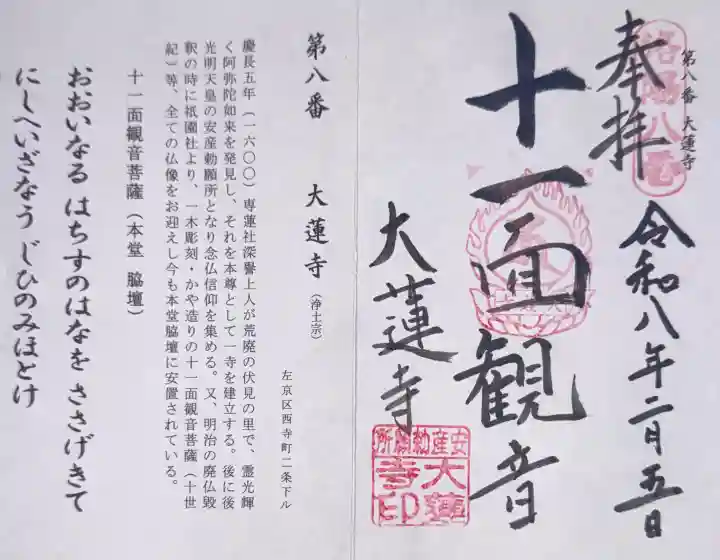 第八番 大蓮寺
洛陽八番
奉拝
令和八年二月五日
十一面観音
大蓮寺
安産勅願所
大蓮
寺印
第八番 大蓮寺(浄土宗)
左京区西寺町二条下ル
慶長五年(一六〇〇)専蓮社深誉上人が荒廃の伏見の里で、霊光輝
く阿弥陀如来を発見し、それを本尊として一寺を建立する。後に後
光明天皇の安産勅願所となり念仏信仰を集める。又、明治の廃仏毀
釈の時に祇園社より、一木彫刻・かや造りの十一面観音菩薩(十世
紀)等、全ての仏像をお迎えし今も本堂脇壇に安置されている。
十一面観音菩薩(本堂 脇壇)
おおいなる はちすのはなを ささげきて
にしへいざなう じひのみほとけ